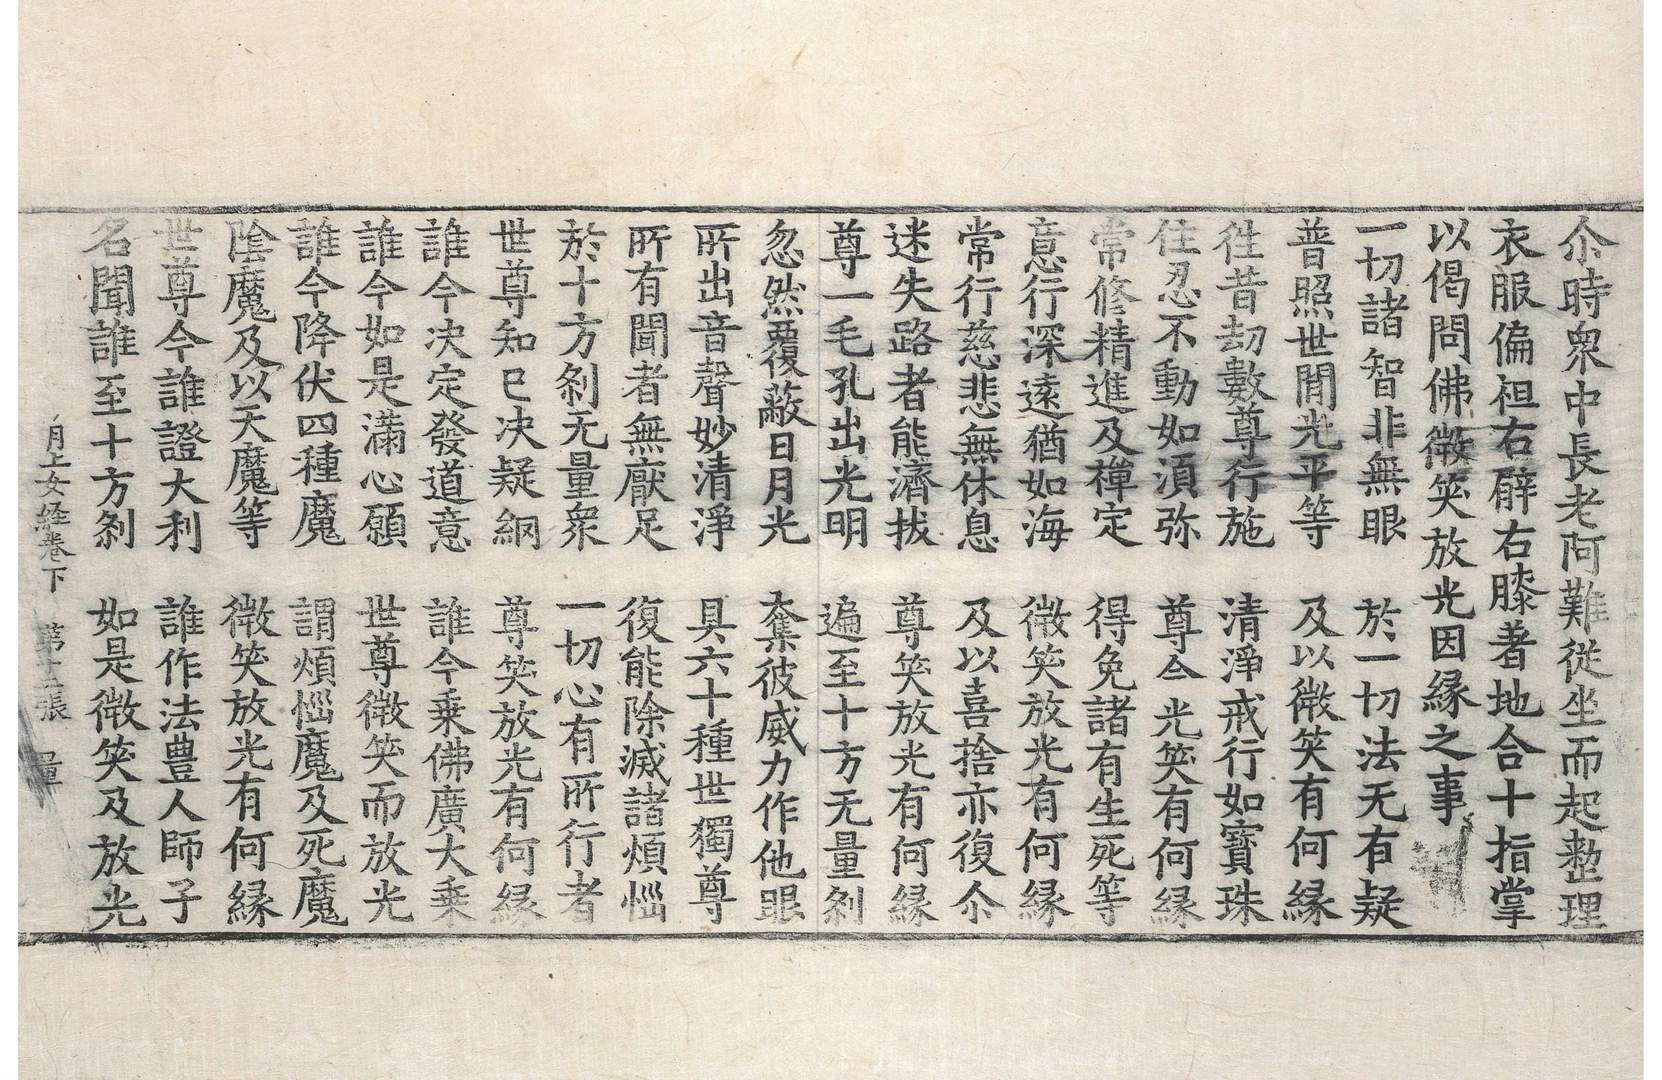 尒時衆中長老阿難從坐而起整理
衣服偏袒右臂右膝著地合十指掌
以偈問佛微笑放光因緣之事
一切諸智非無眼　於一切法无有疑
普照世間光平等　及以微笑有何緣
徃昔劫數尊行施　清淨戒行如寶珠
住忍不動如湏弥　尊今光笑有何緣
常修精進及禪定　得免諸有生死等
意行深遠猶如海　微笑放光有何緣
常行慈悲無休息　及以喜捨亦復尒
迷失路者能濟拔　尊笑放光有何緣
尊一毛孔出光明　遍至十方无量剎
忽然覆蔽日月光　奪彼威力作他眼
所出音聲妙清淨　具六十種世獨尊
所有聞者無厭足　復能除滅諸煩惱
於十方剎无量衆　一切心有所行者
世尊知已决疑網　尊笑放光有何緣
誰今决定發道意　誰今乗佛廣大乗
誰今如是滿心願　世尊微笑而放光
誰今降伏四種魔　謂煩惱魔及死魔
陰魔及以天魔等　微笑放光有何緣
世尊今誰證大利　誰作法豊人師子
名聞誰至十方剎　如是微笑及放光
月上女経卷下　第十二張　量